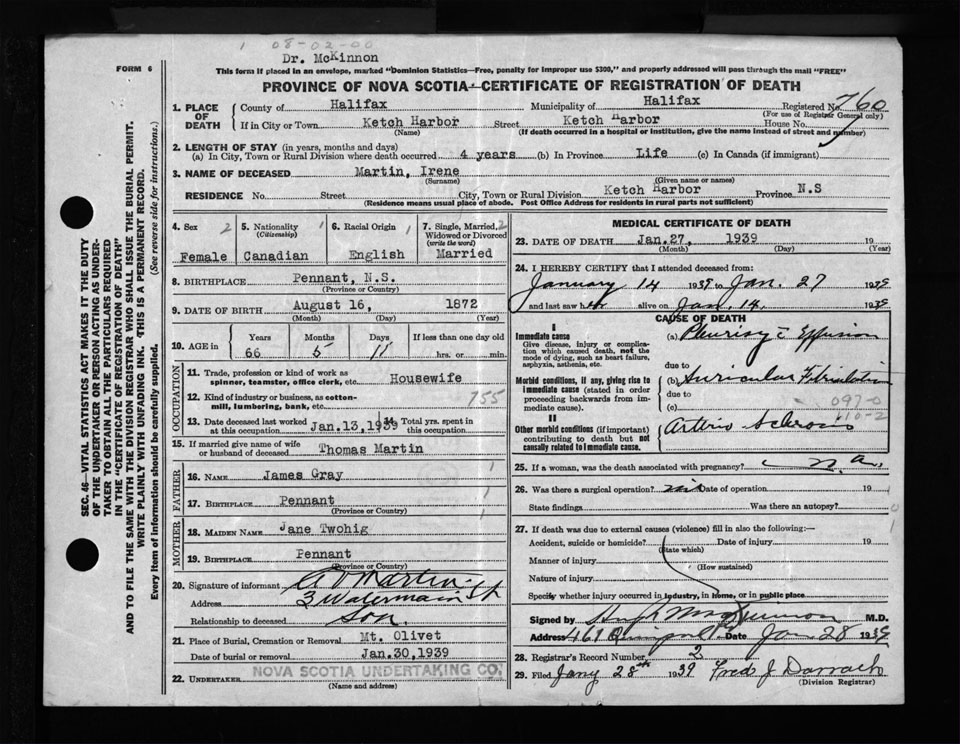 1 08-02-00
Dr. McKinnon
FORM 6
This form if placed in an envelope, marked "Dominion Statistics—Free, penalty for improper use $300," and properly addressed will pass through the mail "FREE"
PROVINCE OF NOVA SCOTIA—CERTIFICATE OF REGISTRATION OF DEATH
SEC. 46—VITAL STATISTICS ACT MAKES IT THE DUTY
OF THE UNDERTAKER OR PERSON ACTING AS UNDER-
TAKER TO OBTAIN ALL THE PARTICULARS REQUIRED
IN THE "CERTIFICATE OF REGISTRATION OF DEATH"
AND TO FILE THE SAME WITH THE DIVISION REGISTRAR WHO SHALL ISSUE THE BURIAL PERMIT.
WRITE PLAINLY WITH UNFADING INK. THIS IS A PERMANENT RECORD.
Every item of information should be carefully supplied. (See reverse side for instructions.)
1. PLACE OF DEATH
County of Halifax Municipality of Halifax Registered No. 760
(For use of Registrar General only)
If in City or Town Ketch Harbor Street Ketch Harbor House No.
(Name) (If death occurred in a hospital or institution, give the name instead of street and number)
2. LENGTH OF STAY (in years, months and days)
(a) In City, Town or Rural Division where death occurred 4 years (b) In Province Life (c) In Canada (if immigrant)
3. NAME OF DECEASED Martin, Irene
(Surname) (Given name or names)
RESIDENCE No. Street City, Town or Rural Division Ketch Harbor Province N.S
(Residence means usual place of abode. Post Office Address for residents in rural parts not sufficient)
4. Sex 2 Female
5. Nationality (Citizenship) 1 Canadian
6. Racial Origin 1 English
7. Single, Married, Widowed or Divorced (write the word) 2 Married
8. BIRTHPLACE Pennant, N.S.
(Province or Country)
9. DATE OF BIRTH August 16, 1872
(Month) (Day) (Year)
10. AGE in Years 66 Months 5 Days 11 If less than one day old hrs. or min.
OCCUPATION
11. Trade, profession or kind of work as spinner, teamster, office clerk, etc. Housewife
12. Kind of industry or business, as cotton-mill, lumbering, bank, etc. 755
13. Date deceased last worked at this occupation Jan.13,1939 14. Total yrs. spent in this occupation
15. If married give name of wife or husband of deceased Thomas Martin
FATHER
16. NAME James Gray 1
17. BIRTHPLACE Pennant 1
(Province or Country)
MOTHER
18. MAIDEN NAME Jane Twohig
19. BIRTHPLACE Pennant
(Province or Country)
20. Signature of informant Martin
Address 3
Relationship to deceased Son.
21. Place of Burial, Cremation or Removal Mt. Olivet
Date of burial or removal Jan.30,1939
22. UNDERTAKER NOVA SCOTIA UNDERTAKING CO.
(Name and address)
MEDICAL CERTIFICATE OF DEATH
23. DATE OF DEATH Jan.27, 1939 19
(Month) (Day) (Year)
24. I HEREBY CERTIFY that I attended deceased from:
January 14 1939 to Jan. 27 1939
and last saw her alive on Jan 14. 1939
CAUSE OF DEATH
I
Immediate cause
Give disease, injury or complication which caused death, not the mode of dying, such as heart failure, asphyxia, asthenia, etc.
(a) Pleurisy c Effusion
due to
Morbid conditions, if any, giving rise to immediate cause (stated in order proceeding backwards from immediate cause).
(b) Auricular Fibrillation
due to
(c) 097-0
II
110-2
Other morbid conditions (if important) contributing to death but not causally related to immediate cause.
Arterio Sclerosis
25. If a woman, was the death associated with pregnancy? n.a.
26. Was there a surgical operation? nil Date of operation 19
State findings Was there an autopsy?
27. If death was due to external causes (violence) fill in also the following:—
Accident, suicide or homicide? Date of injury 19
(State which)
Manner of injury
(How sustained)
Nature of injury
Specify whether injury occurred in industry, in home, or in public place
Signed by M.D.
Address 469 Date Jan 28 1939
28. Registrar's Record Number 2
29. Filed Jany 28th 1939 Fred J Darrach
(Division Registrar)